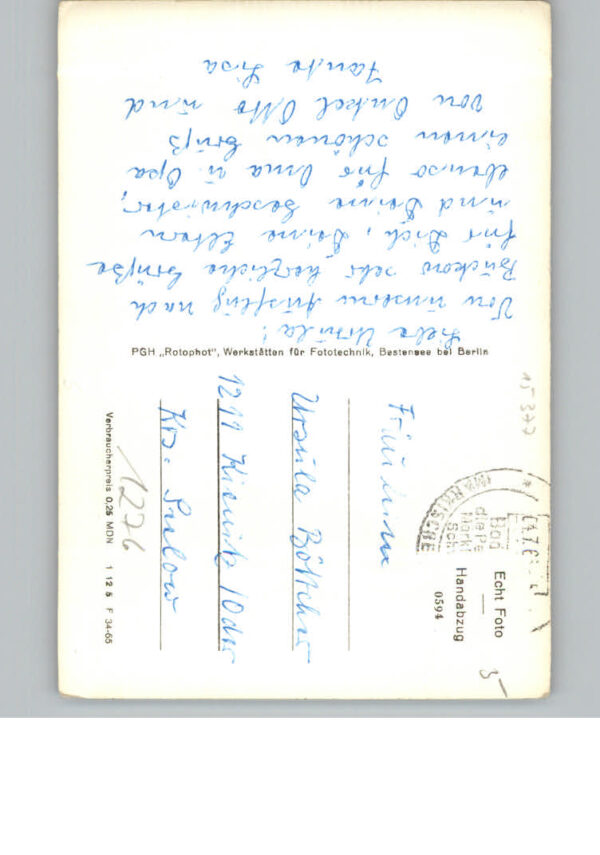 Liebe Ursula!
Von unserm Ausflug nach
Buckow sehr herzliche Grüße
für Dich, Deine Eltern
und Deine Geschwister,
ebenso für Oma u. Opa
einen schönen Gruß
von Onkel Otto und
Tante Lisa
PGH „Rotophot", Werkstätten für Fototechnik, Bestensee bei Berlin
Echt Foto
Handabzug
0594
MÄRKISCHE
Fräulein
Ursula Böttcher
1211 Kienitz/Oder
Krs. Seelow
1276
Verbraucherpreis 0,25 MDN 1 12 5 F 34-65
15377